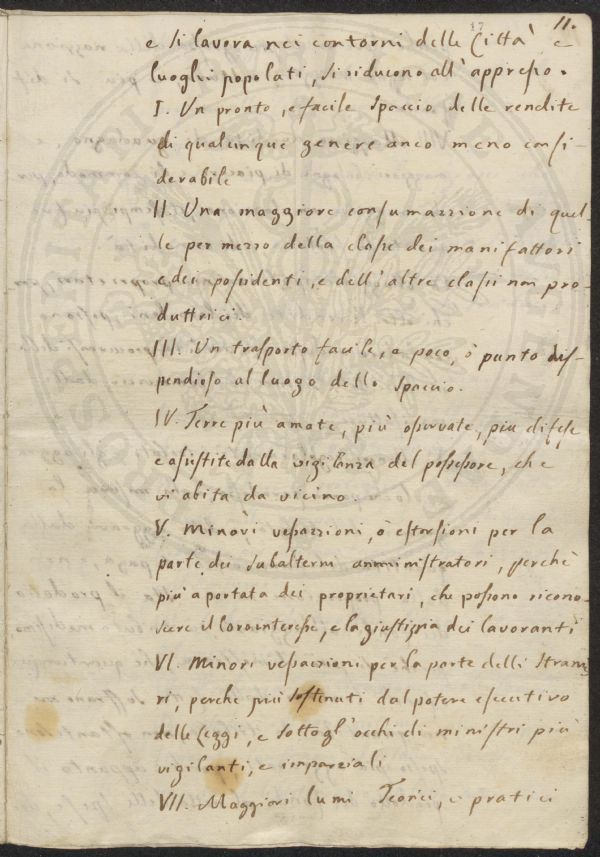 17 11.
e si lavora nei contorni delle Città e
luoghi popolati, si riducono all'appresso.
I. Un pronto, e facile spaccio delle rendite
di qualunque genere anco meno consi-
derabile
II. Una maggiore consumazzione di quel-
le per mezzo della classe dei manifattori
e dei possidenti, e dell'altre classi non pro-
duttrici.
III. Un trasporto facile, e poco, ò punto dis-
pendioso al luogo dello spaccio.
IV. Terre più amate, più osservate, più difese
e assistite dalla vigilanza del possessore, che
vi abita da vicino.
V. Minori vessazzioni, ò estorsioni per la
parte dei subalterni amministratori, perchè
più a portata dei proprietari, che possono ricono-
scere il loro interesse, e la giustizzia dei lavoranti
VI. Minori vessazzioni per la parte delli stranie-
ri, perche più sostenuti dal potere esecutivo
delle Leggi, e sotto gl'occhi di ministri più
vigilanti, e imparziali
VII. Maggiori lumi Teorici, e pratici